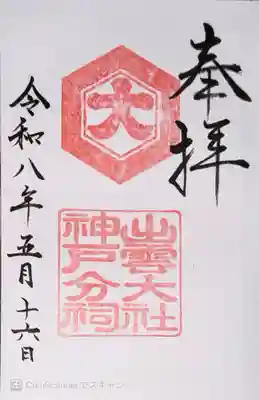 奉拝
大
出雲大社
神戸分祠
令和八年五月十六日
CamScannerでスキャン